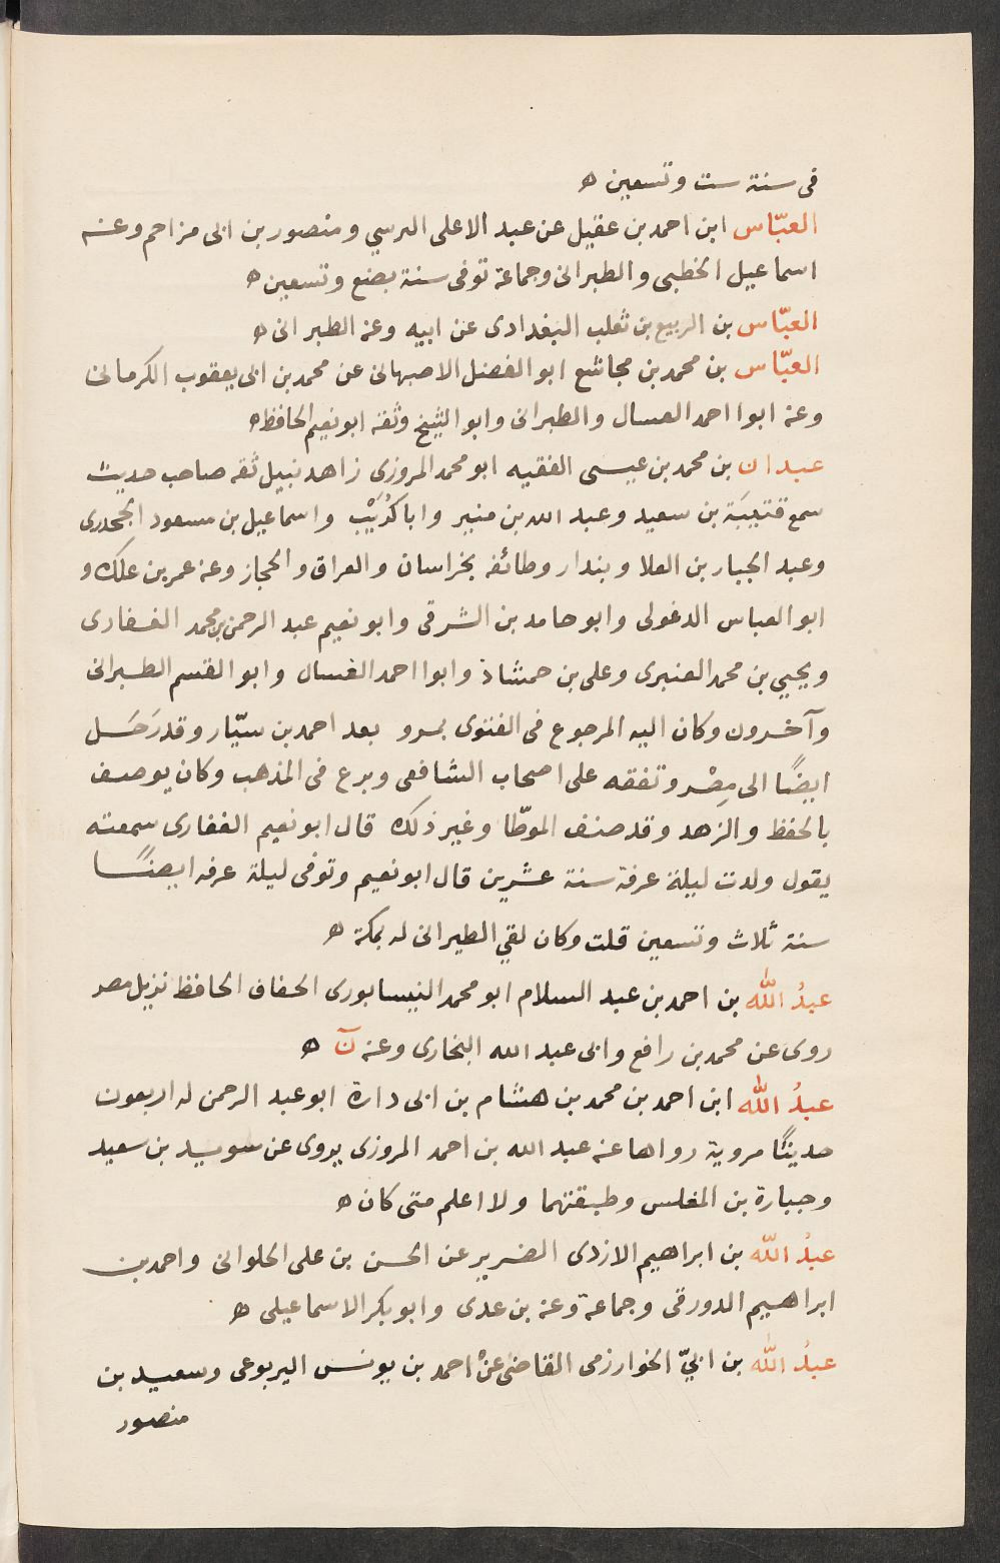 فى سنة ست وتسعين ه
العبّاس ابن احمد بن عقيل عن عبد الاعلى النرسي ومنصور بن ابى مزاحم وعنه
اسماعيل الخطبى والطبرانى وجماعة توفى سنة بضع وتسعين ه
العبّاس بن الربيع بن ثعلب البغدادى عن ابيه وعنه الطبرانى ه
العبّاس بن محمد بن مجاشع ابو الفضل الاصبهانى عن محمد بن ابى يعقوب الكرمانى
وعنه ابوا احمد العسال والطبرانى وابو الشيخ وثقه ابو نعيم الحافظ ه
عبدان بن محمد بن عيسى الفقيه ابو محمد المروزى زاهد نبيل ثقه صاحب حديث
سمع قتيبَة بن سعيد وعبد الله بن منير وابا كُرَيْب واسماعيل بن مسعود الجحدرى
وعبد الجبار بن العلا وبندار وطائفه بخراسان والعراق والحجاز وعنه عمر بن علك و
ابو العباس الدغولى وابو حامد بن الشرقى وابو نعيم عبد الرحمن بن محمد الغفارى
ويحيي بن محمد العنبرى وعلى بن حمشاذ وابوا احمد الغسال وابو القسم الطبرانى
وآخرون وكان اليه المرجوع فى الفتوى بمرو بعد احمد بن سيّار وقد رَحَل
ايضًا الى مِصْر وتفقه على اصحاب الشافعى وبرع فى المذهب وكان يوصف
بالحفظ والزهد وقد صنف الموطّا وغير ذلك قال ابو نعيم الغفارى سمعته
يقول ولدت ليلة عرفة سنة عشرين قال ابو نعيم وتوفى ليلة عرفه ايضًا
سنة ثلاث وتسعين قلت وكان لقي الطبرانى له بمكة ه
عبدُ الله بن احمد بن عبد السلام ابو محمد النيسابورى الخفاف الحافظ نزيل مصر
روى عن محمد بن رافع وابى عبد الله البخارى وعنه نٓ ه
عبدُ الله ابن احمد بن محمد بن هشام بن ابى دارة ابو عبد الرحمن له اربعون
حديثًا مروية رواها عنه عبد الله بن احمد المروزى يروى عن سويد بن سعيد
وجبارة بن المغلس وطبقتهما ولا اعلم متى كان ه
عبدُ الله بن ابراهيم الازدى الضرير عن الحسن بن على الحلوانى واحمد بن
ابراهيم الدورقى وجماعة وعنه بن عدى وابو بكر الاسماعيلى ه
عبدُ الله بن ابيّ الخوارزمى القاضى عنْ احمد بن يونس اليربوعى وسعيد بن
منصور